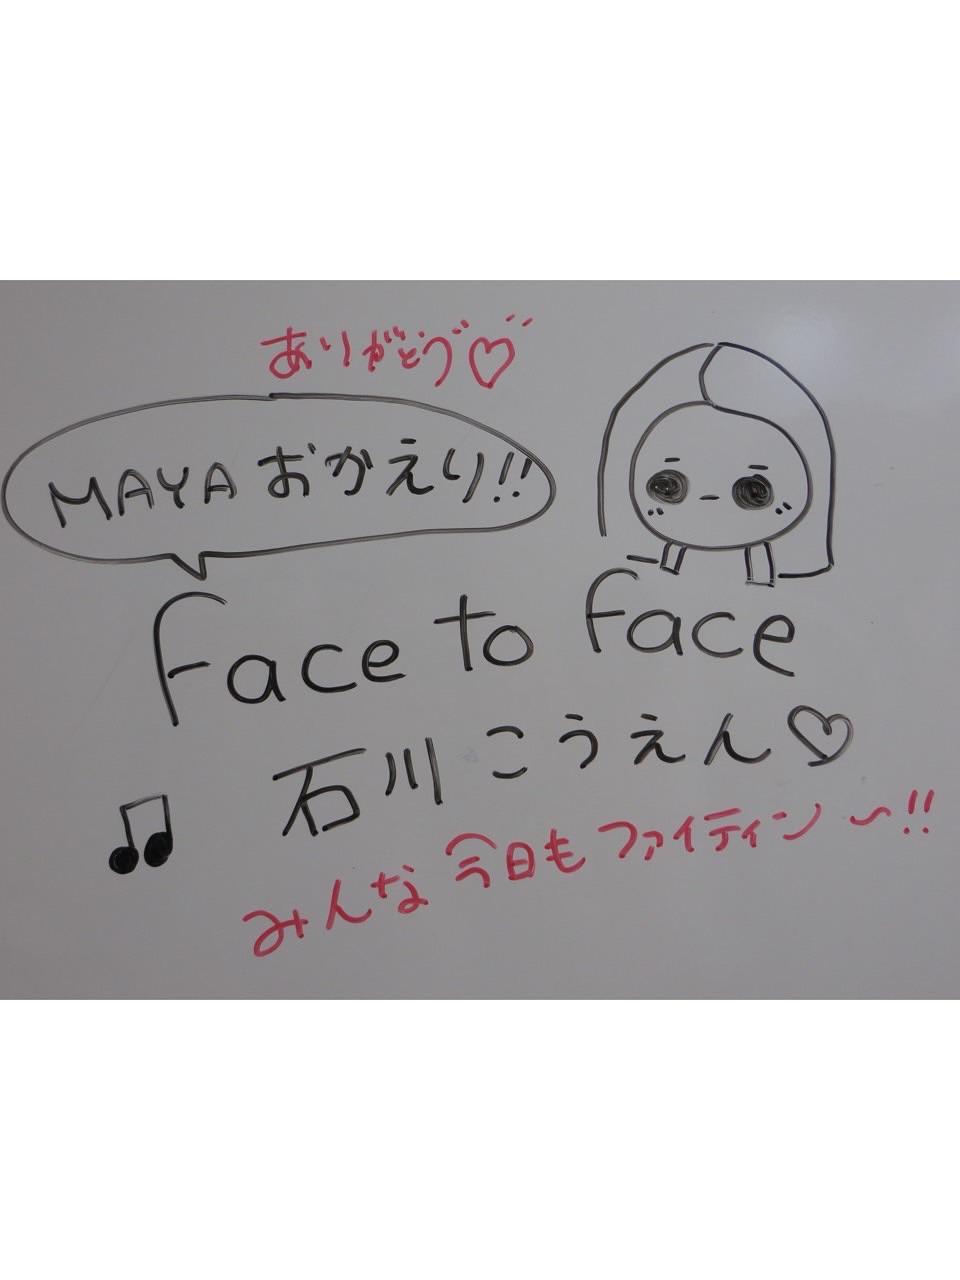 ありがとう♡
MAYAおかえり!!
face to face
♪ 石川こうえん♡
みんな今日もファイティン〜!!